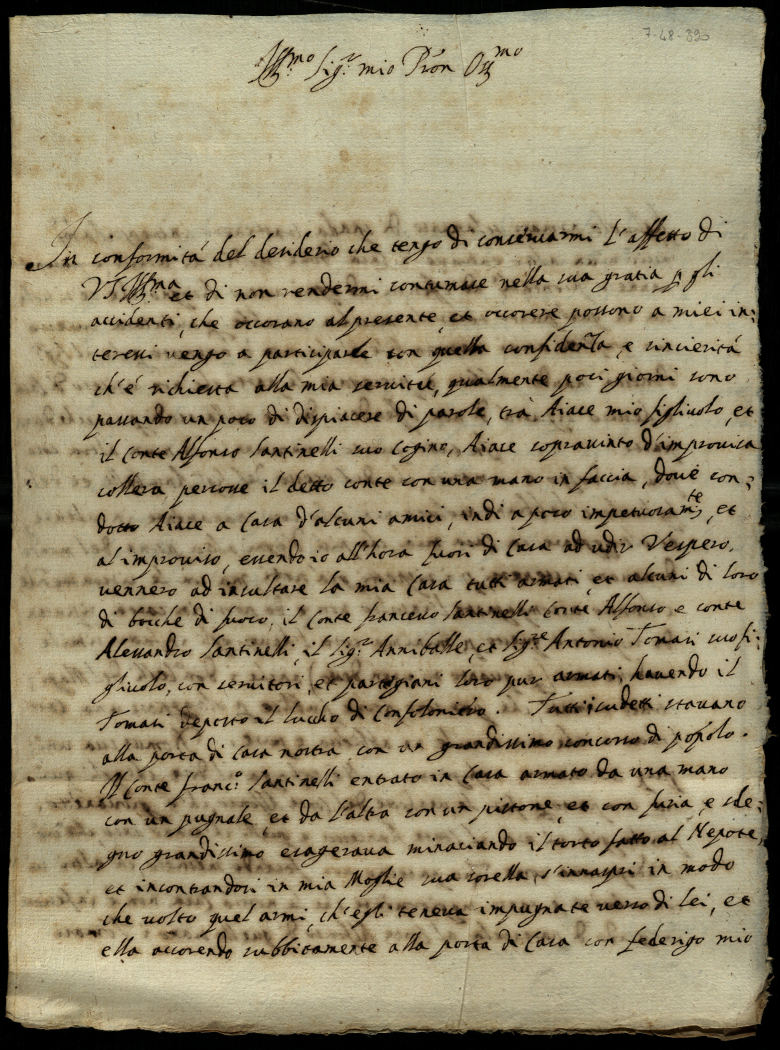 7-48-890
Ill.mo Sig.r mio Pron Oss.mo
In conformità del desiderio che tengo di conservarmi l'affetto di
V.S. Ill.ma et di non rendermi contumace nella sua gratia p gli
accidenti, che occorano al presente, et occorere possono a miei in:
teressi vengo a participarle con quella confidenza, e sincierità
ch'è richiesta alla mia servitù, qualmente poci giorni sono
passando un poco di dispiacere di parole, trà Aiace mio figliuolo, et
il Conte Alfonso Santinelli suo Cogino, Aiace sopravinto d'improvisa
collera percosse il detto conte con una mano in faccia, dove con:
dotto Aiace a Casa d'alcuni amici, indi a poco impetuosam.te, et
al improviso, essendo io all'hora fuori di Casa ad udir Vespero,
vennero ad insultare la mia Casa tutti armati, et alcuni di loro
di bocche di fuoco, il Conte francesco Santinelli Conte Alfonso e conte
Alessandro Santinelli, il sig.r Anniballe, et sig.re Antonio Tomasi suo fi:
gliuolo, con servitori, et partegiani loro pur armati, havendo il
Tomasi deposto il lucho di Confaloniero. Tutti i sudetti stavano
alla porta di Casa nostra con un grandissimo concorso di popolo.
Il Conte franc.o Santinelli entrato in Casa armato da una mano
con un pugnale, et da l'altra con un pistone, et con furia, e sde:
gno grandissimo esagerava minaciando il torto fatto al Nepote,
et incontrandosi in mia Moglie sua sorella, s'innaspri in modo
che volto quel armi, ch'egli teneva impugnate verso di lei, et
ella accorendo subbitamente alla porta di Casa con federigo mio